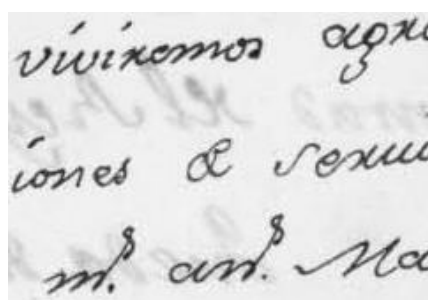 viviremos agra
iones & servi
m.s an.s Ma